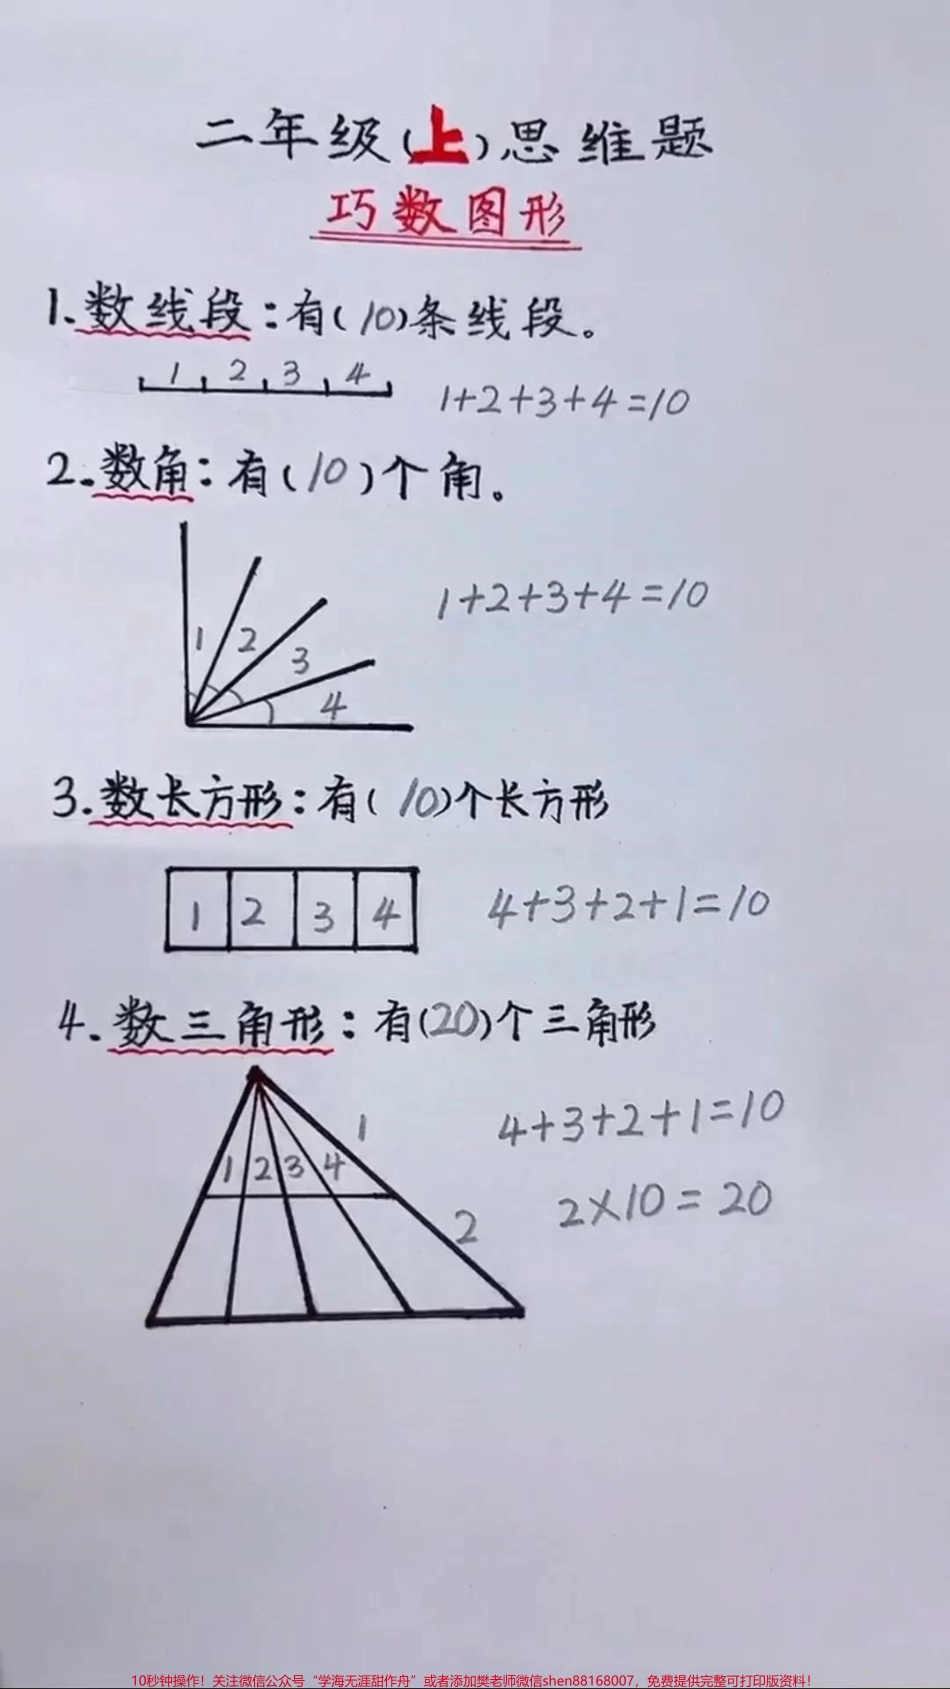 二年级(上)思维题
巧数图形
1.数线段:有(10)条线段。
1 2 3 4
1+2+3+4=10
2.数角:有(10)个角。
1 2 3 4
1+2+3+4=10
3.数长方形:有(10)个长方形
1 2 3 4
4+3+2+1=10
4.数三角形:有(20)个三角形
1
4+3+2+1=10
1 2 3 4
2
2×10=20
10秒钟操作！关注微信公众号“学海无涯甜作舟”或者添加樊老师微信shen88168007，免费提供完整可打印版资料！